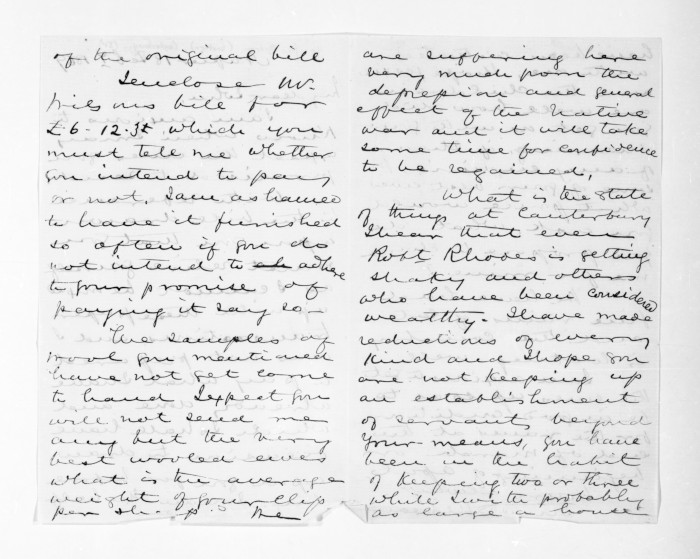 of the original bill
I enclose Mr.
Wilsons bill for
£6-12.3d which you
must tell me whether
you intend to pay
or not, I am ashamed
to have it furnished
so often if you do
not intend to adhere
to your promise of
paying it say so -
The samples of
wool you mentioned
have not yet come
to hand I expect you
will not send me
any but the very
best wooled ewes
what is the average
weight of your clip
per Sh. p. We
are suffering here
very much from the
depression and general
effect of the Native
war and it will take
some time for confidence
to be regained.
What is the state
of things at Canterbury
I hear that even
Robt Rhodes is getting
shaky and others
who have been considered
wealthy. I have made
reductions of every
kind and I hope you
are not keeping up
an establishment
of servants beyond
your means, you have
been in the habit
of keeping two or three
while I with probably
as large a house